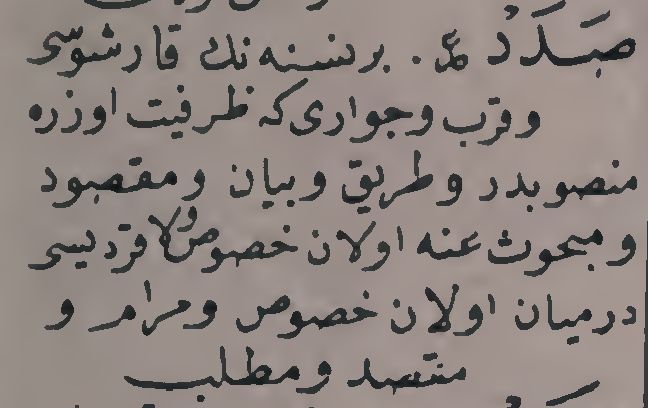 صَدَدْ ع. برنسنه نك قارشوسى
وقرب وجوارى كه ظرفيت اوزره
منصوبدر وطريق وبيان ومقصود
ومبحوث عنه اولان خصوص
درميان اولان خصوص ومرام و
مقصد ومطلب